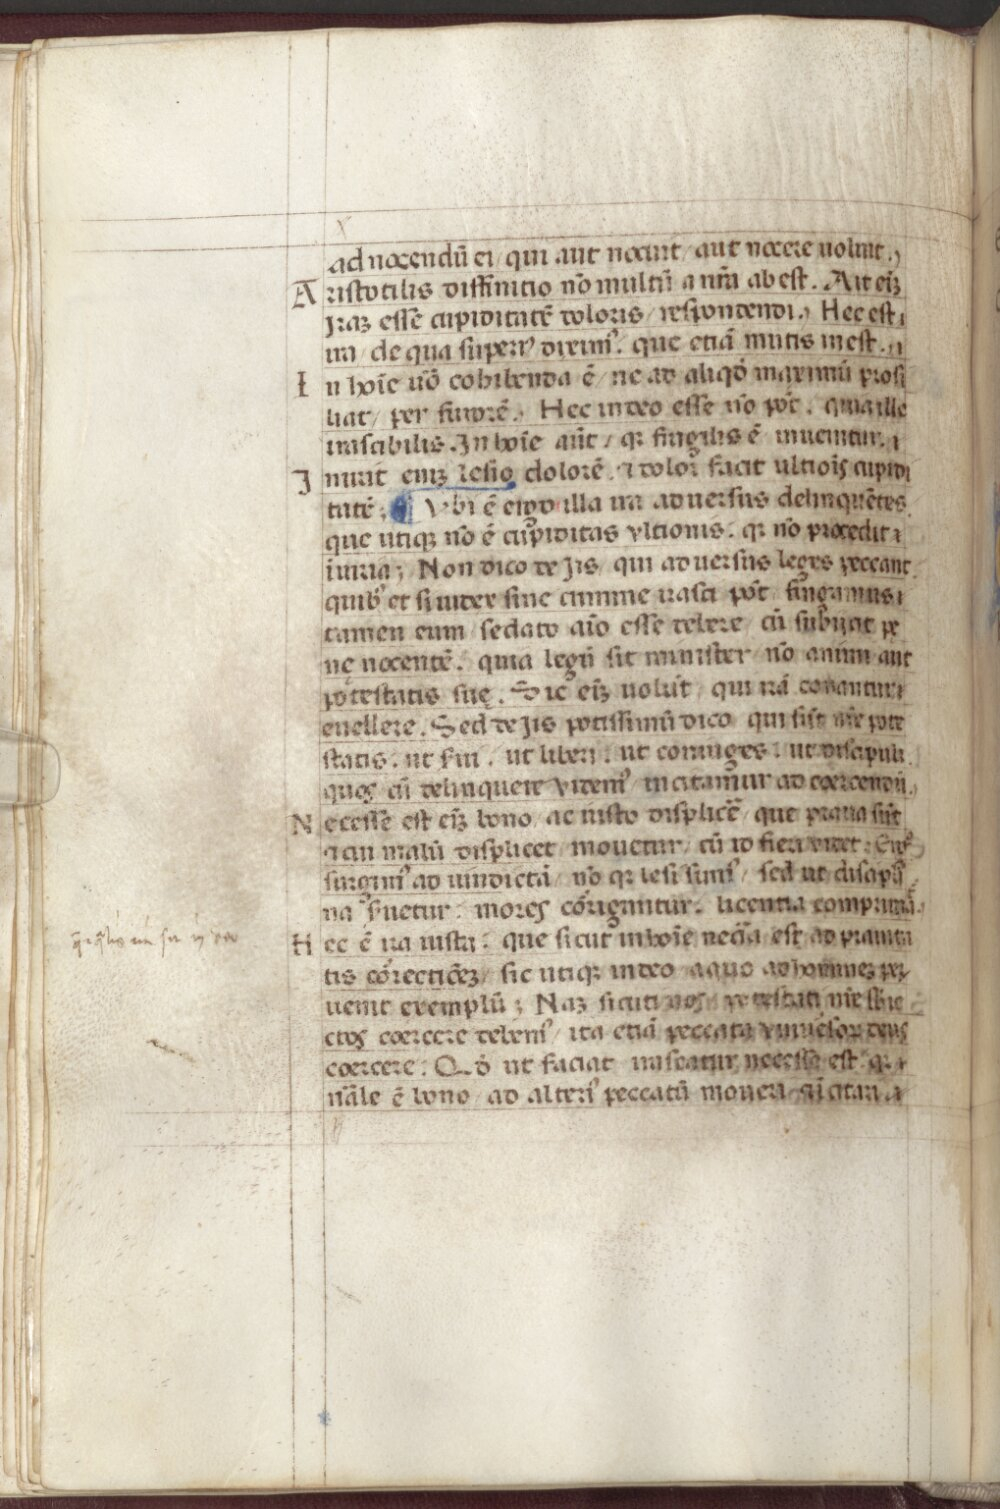 ad nocendū ei / qui aut nocuit / aut nocere voluit.,
Aristotilis diffinitio nō multū a nr̄a abest. Ait eīȝ
Iraȝ esse cupiditatē doloris / respondendi., Hec est
ira / de qua superiꝰ diximꝰ. que etiā mutis inest.,
In hoīe v̄o cohibenda ē / ne ad aliqđ maximū prosi
liat / per furorē. Hec in deo esse nō pōt. quia ille
irascibilis. In hoīe aūt / qꝛ fragilis ē inuenitur.
Inurit eniȝ lesio dolorē. ⁊ dolor facit ultiōis cupidi
tatē. Vbi ē ergo illa ira aduersus delinquētes.
que utiqꝫ nō ē cupiditas vltionis. qꝛ nō procedit
iuria; Non dico de Jis / qui aduersus leges peccant
quibꝰ et si iudex sine crimine irasci pōt / fingamus
tamen eum / sedato aīo esse debere / cū subijcit pe
ne nocentē. quia legū sit minister / nō animi aut
potestatis suę. Sic eīȝ volūt / qui irā conantur
euellere. Sed de Jis potissimū dico qui sūt nr̄e pote
statis. ut serui. ut liberi. ut coniuges. ut discipuli.
quos cū delinquere videmꝰ / incitamur ad coercendū.,
Necesse est eīȝ bono / ac iusto displicēt que praua sūt
⁊ cui malū displicet / mouetur / cū id fieri videt. Ergo
surgimꝰ ad vindictā / nō qꝛ lesi sumꝰ / sed ut discipli
na seruetur. mores corrigantur. licentia comprimāt.
Hec ē ira iusta. que sicut in hoīe necīa est ad prauita
tis correctiōeȝ / sic utiqꝫ in deo / a quo ad homineȝ per
uenit exemplū; Naȝ sicuti nos / potestati nr̄e sbie
ctos coercere debemꝰ / ita etiā peccata vniuersorꝝ deus
coercere. Qđ ut faciat irascatur necesse est qꝛ
nāle ē bono / ad alteriꝰ peccatū moueri ⁊ icitari.